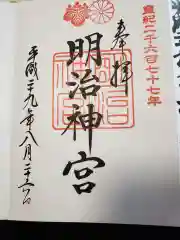 皇紀二千六百七十七年
奉拝
明治神宮
平成二十九年八月二十三日